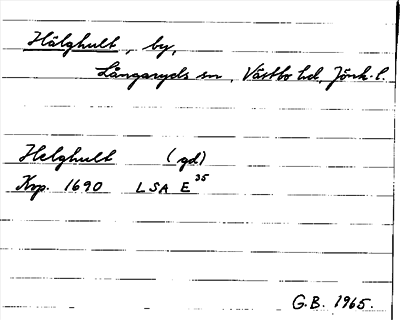 Hälghult, by,
Långaryds sn, Västbo hd, Jönk. l.
Helghult (gd)
Krp. 1690 LSA E 35
G.B. 1965.